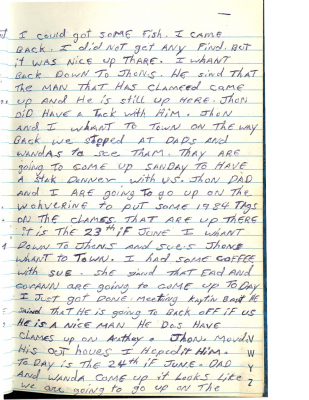 I could got some Fish. I came
Back. I did not get Any Find. But
it was Nice up Thare. I whant
Back Down To Jhons. He sind That
The man That Has clameed came
up And He is still up Here. Jhon
DiD Have a Tack with Him. Jhon
And I whant To Town on The way
Back we stopped AT DADs And
wandas To see Tham. They Are
going To come up sanDay To Have
A stak Danner with us. Jhon DAD
And I ARE going To go up on The
wohverine To put some 1984 TAgs
on The clames That are up There
it is The 23th if June I whant
Down To Jhons And sue's Jhons
whant To Town. I Had some Coffee
with sue. She sind That And
are going To come up To Day
I Just got Done meeting He
That He is going To Back off if us
He is a Nice man He Dos Have
clames up on Jhon
His out hours I Hepedit Him.
To Day is The 24th if June. DAD
And wanda come up it looks Like
we are going To go up on The